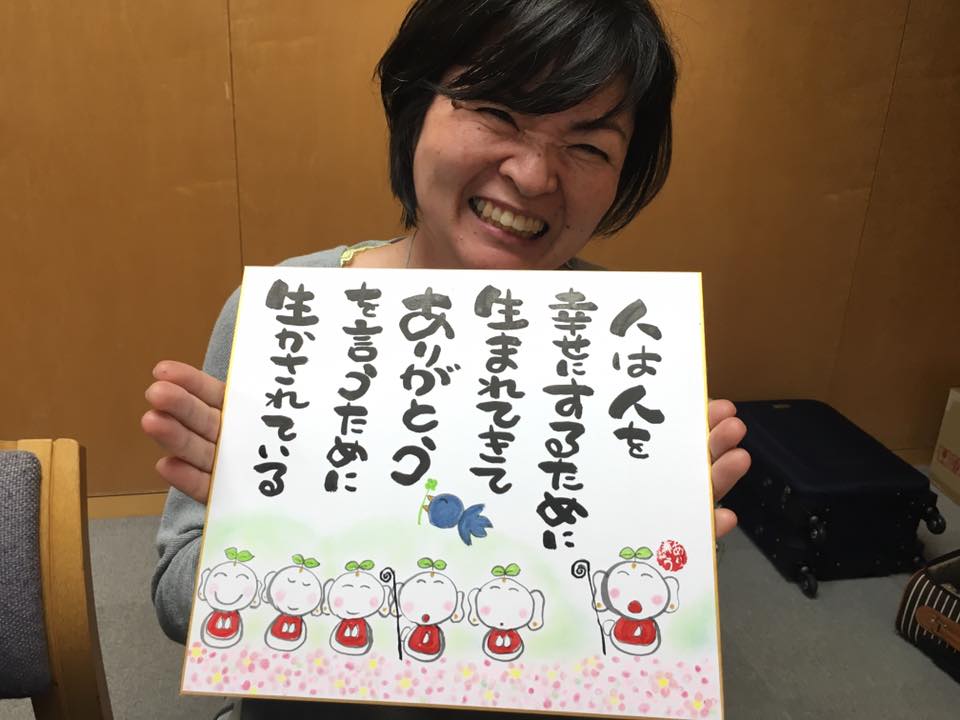 人は人を
幸せにするために
生まれてきて
ありがとう
を言うために
生かされている